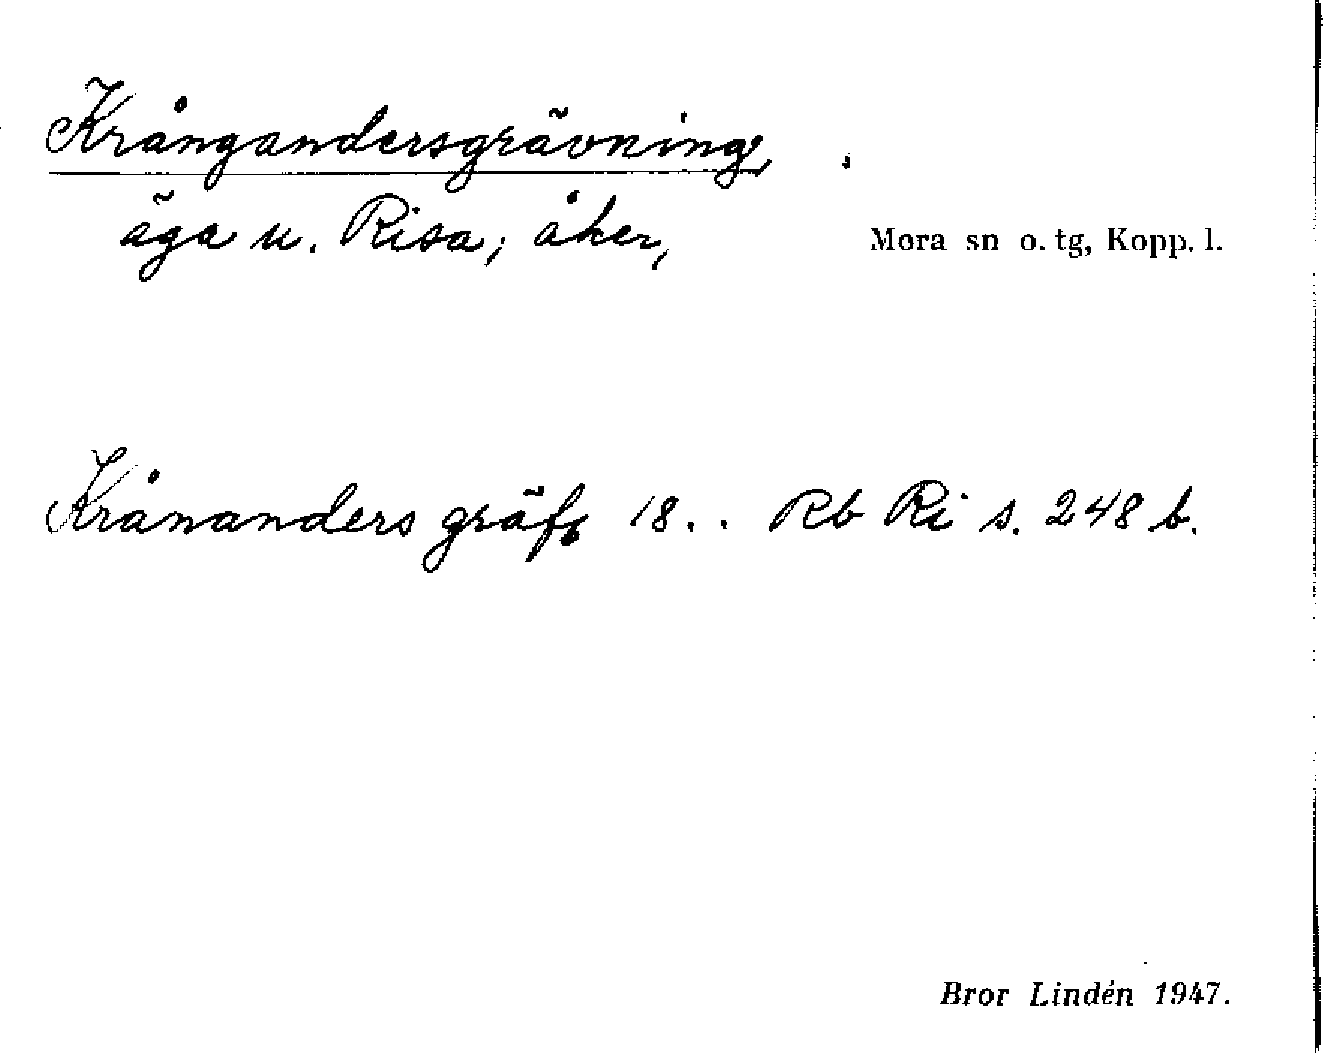 Krångandersgrävning,
äga u. Risa; åker,
Mora sn o. tg, Kopp. l.
Krånanders gräfn 18.. Rb Ri s. 248 b.
Bror Lindén 1947.